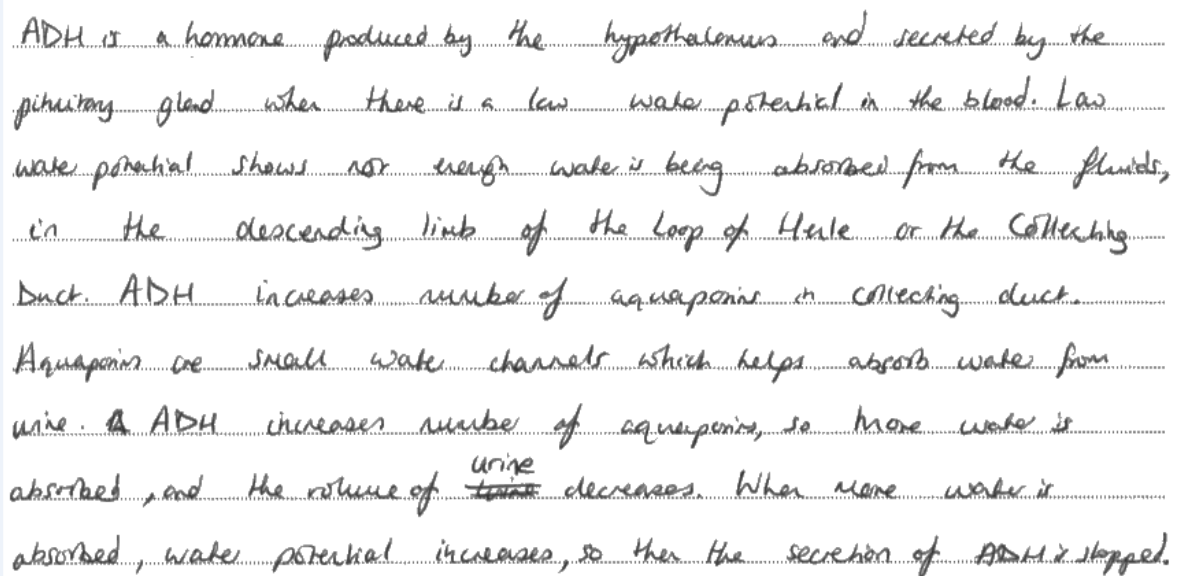 ADH is a hormone produced by the hypothalamus and secreted by the
pituitary gland when there is a low water potential in the blood. Low
water potential shows not enough water is being absorbed from the fluids,
in the descending limb of the Loop of Henle or the Collecting
Duct. ADH increases number of aquaporins in collecting duct.
Aquaporins are small water channels which helps absorb water from
urine. ADH increases number of aquaporins, so more water is
absorbed, and the volume of urine decreases. When more water is
absorbed, water potential increases, so then the secretion of ADH is stopped.